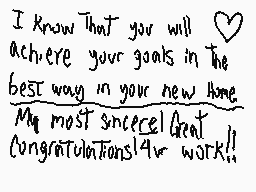 I know That you will
achieve your goals in The
best way in your new Home
My most sincere! Great
Congratulations! 4ur work!!